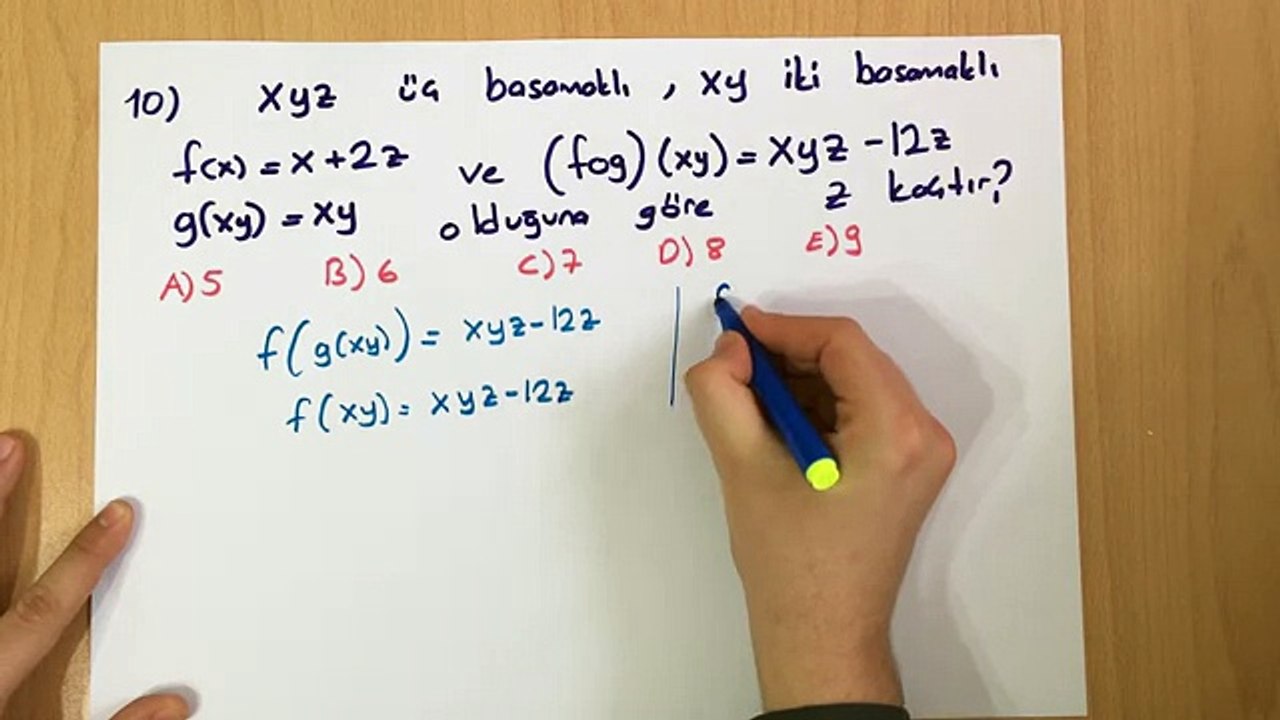 10) xyz üç basamaklı, xy iki basamaklı
f(x) = x + 2z ve (fog)(xy) = xyz - 12z
g(xy) = xy olduğuna göre z kaçtır?
A) 5 B) 6 C) 7 D) 8 E) 9
f(g(xy)) = xyz - 12z
f(xy) = xyz - 12z